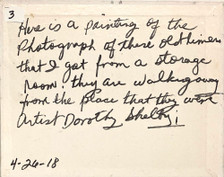 3
Here is a painting of the
Photograph of these oldtimers
that I got from a storage
room. they are walking away
from the place that they went
Artist Dorothy Shelty!
4-26-18